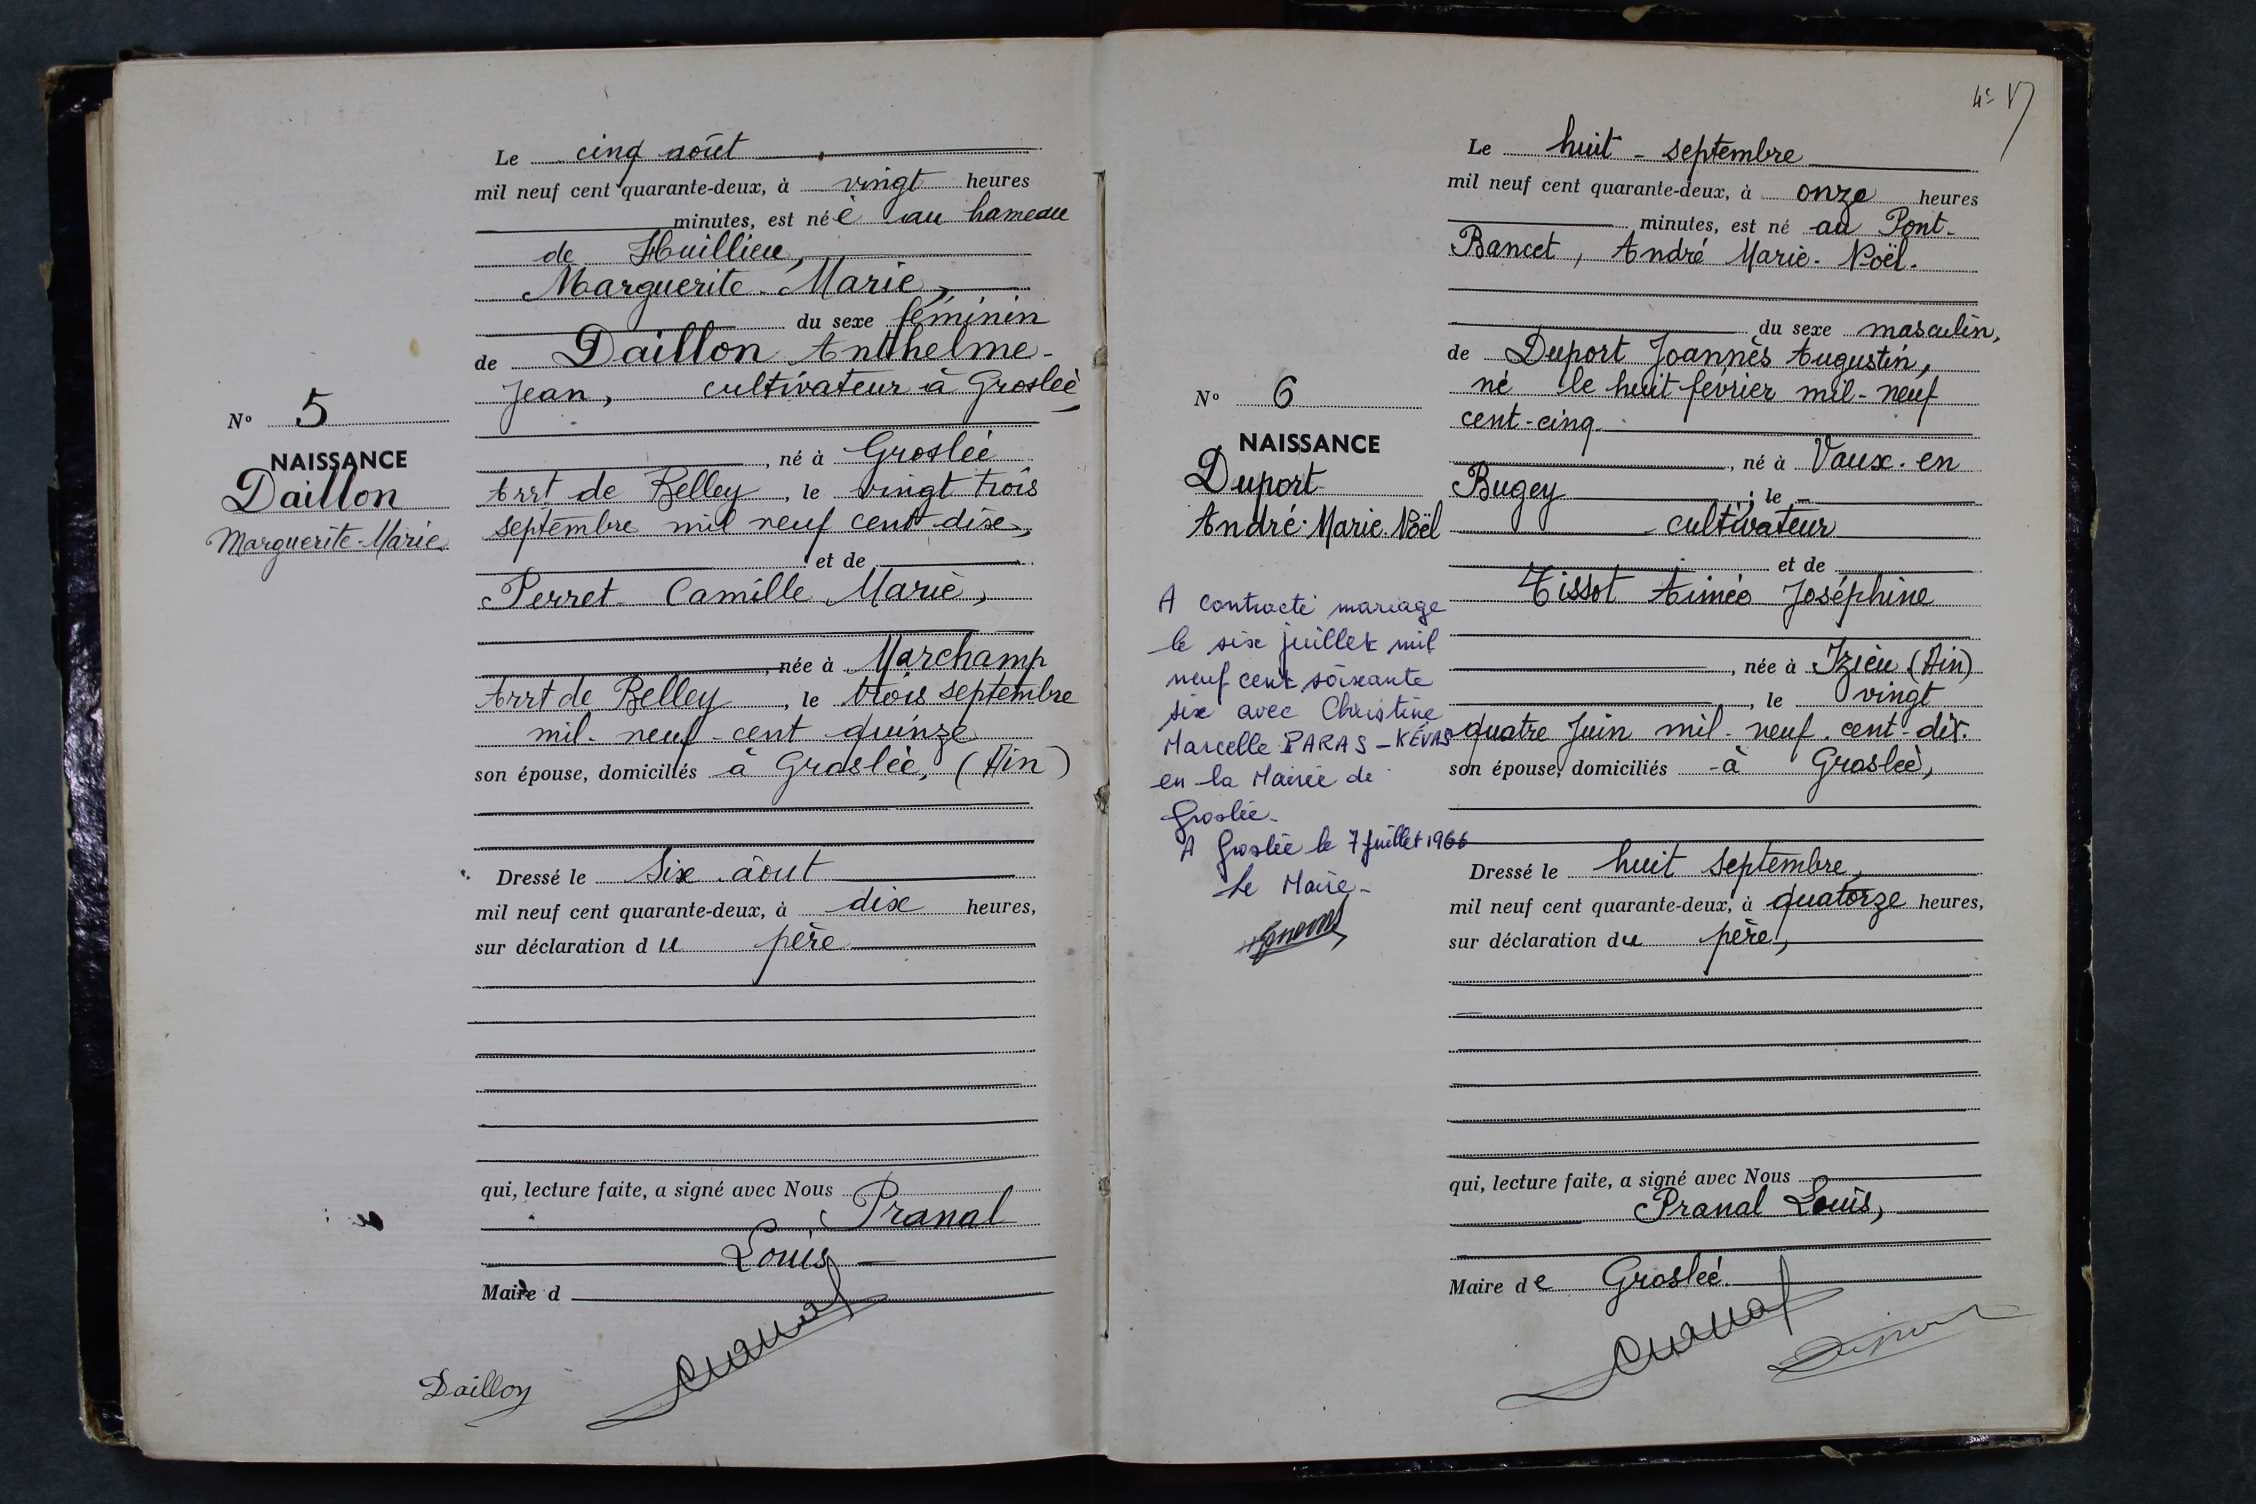 Le cinq août
mil neuf cent quarante-deux, à vingt heures
minutes, est né e au hameau
de Huillieu,
Marguerite-Marie,
du sexe féminin
de Daillon Anthelme-
Jean, cultivateur à Groslée
, né à Groslée
Arrt de Belley, le vingt trois
septembre mil neuf cent dix,
et de
Perret Camille Marie,
, née à Marchamp
Arrt de Belley, le trois septembre
mil-neuf-cent quinze
son épouse, domiciliés à Groslée, (Ain)
Dressé le Six août
mil neuf cent quarante-deux, à dix heures,
sur déclaration du père
qui, lecture faite, a signé avec Nous
Pranal
Louis
Maire d
Daillon
Nº 5
NAISSANCE
Daillon
Marguerite-Marie
4e
Le huit-septembre
mil neuf cent quarante-deux, à onze heures
minutes, est né au Pont-
Bancet, André Marie-Noël.
du sexe masculin,
de Duport Joannès Augustin,
né le huit février mil-neuf
cent-cinq
, né à Vaux-en
Bugey, le -
cultivateur
et de
Tissot Aimée Joséphine
, née à Izieu (Ain)
, le vingt
quatre Juin mil-neuf-cent-dix.
son épouse, domiciliés -à Groslée,
Dressé le huit septembre,
mil neuf cent quarante-deux, à quatorze heures,
sur déclaration du père,
qui, lecture faite, a signé avec Nous
Pranal Louis,
Maire de Groslée
Nº 6
NAISSANCE
Duport
André-Marie-Noël
A contracté mariage
le six juillet mil
neuf cent soixante
six avec Christine
Marcelle PARAS-KÉVAS
en la Mairie de
Groslée-
A Groslée le 7 juillet 1966
Le Maire-